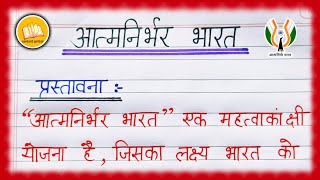 आत्मनिर्भर भारत
प्रस्तावना :-
“आत्मनिर्भर भारत” एक महत्वाकांक्षी
योजना है, जिसका लक्ष्य भारत को